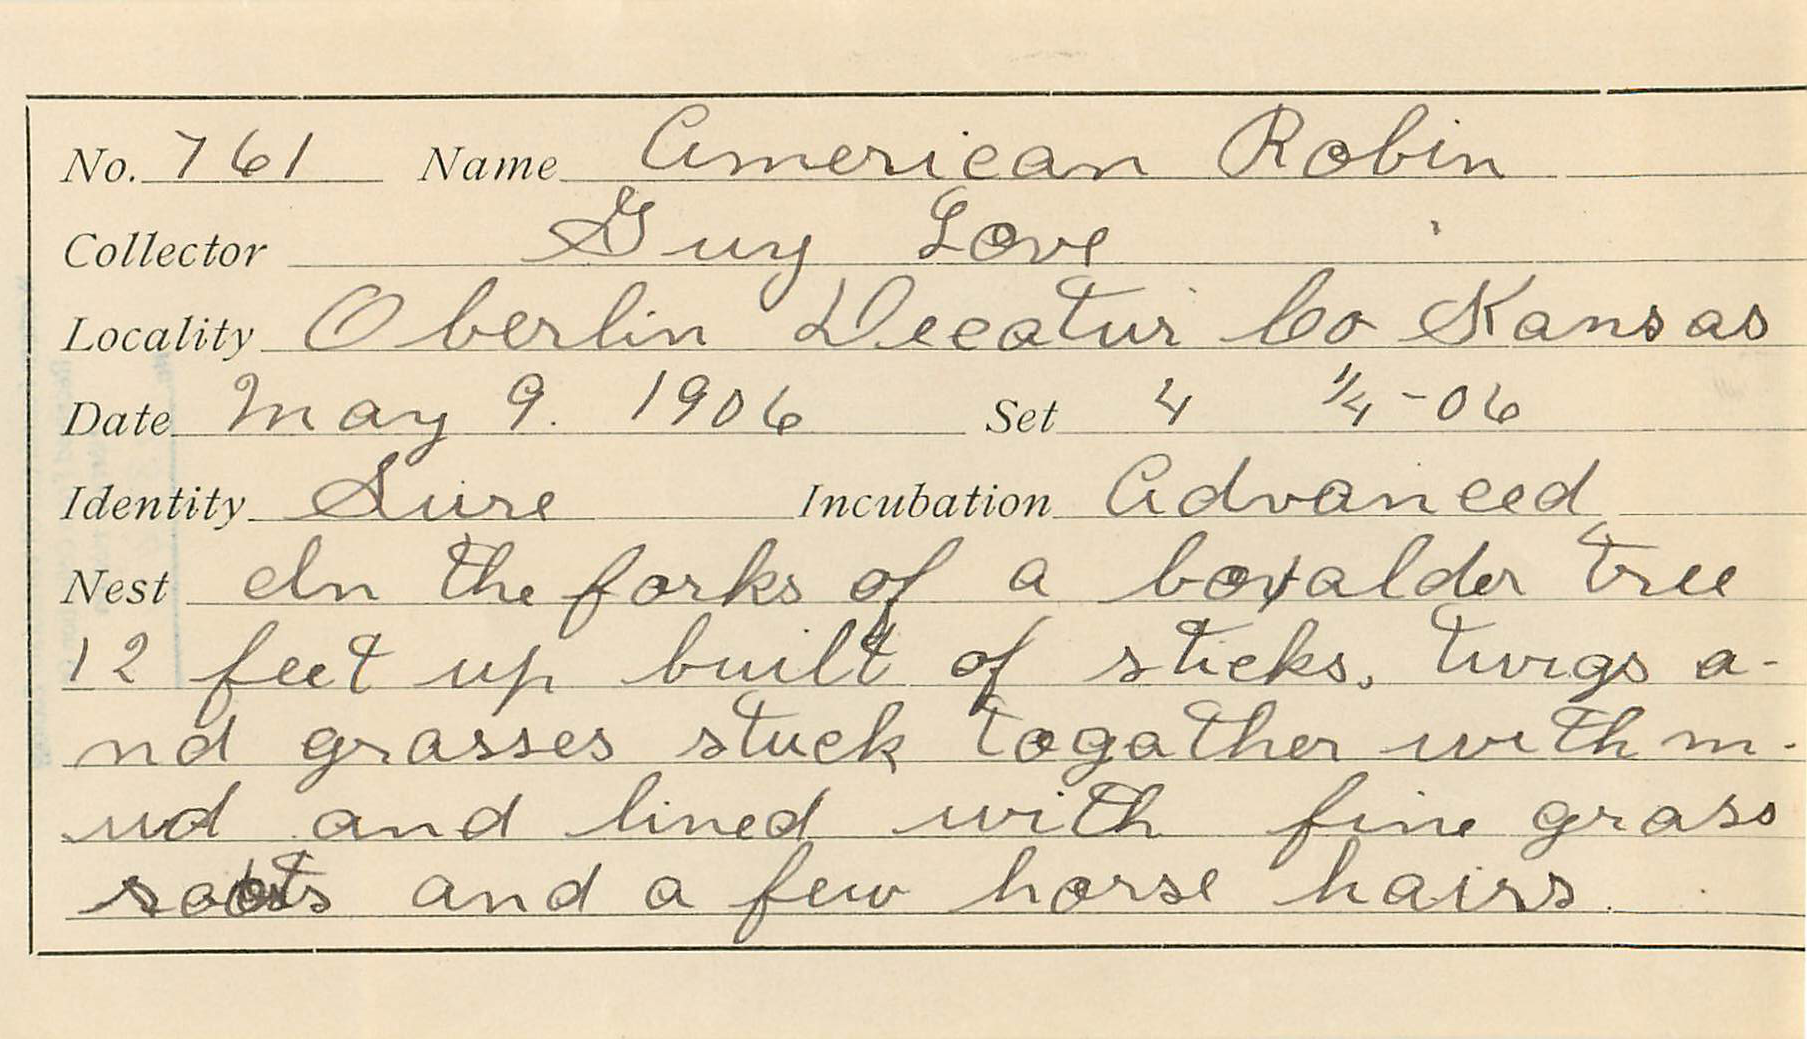 No. 761 Name American Robin
Collector Guy Love
Locality Oberlin Decatur Co Kansas
Date May 9. 1906 Set 4 1/4-06
Identity Sure Incubation Advanced
Nest In the forks of a boxalder tree
12 feet up built of sticks, twigs a-
nd grasses stuck togather with m-
ud and lined with fine grass
roots and a few horse hairs.